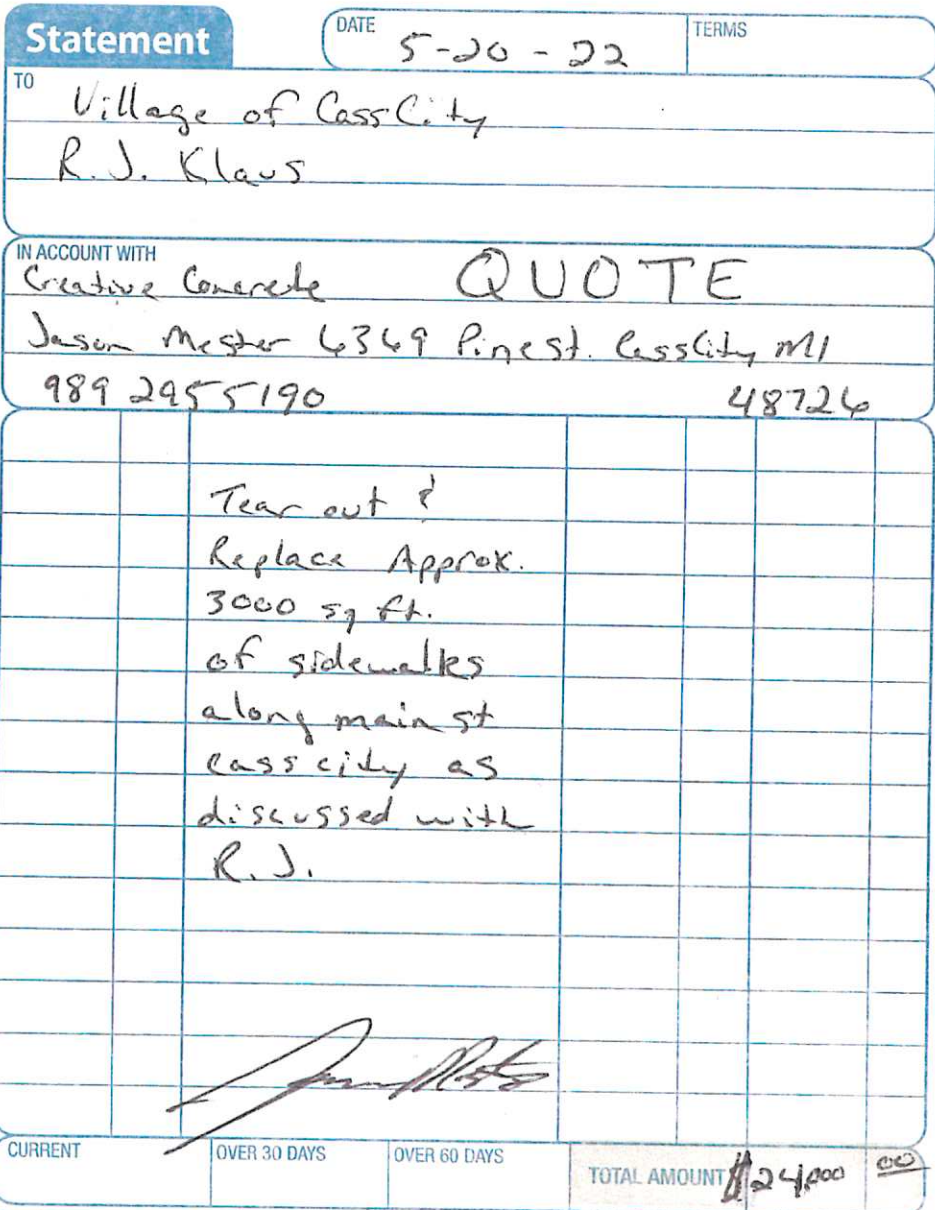 Statement
DATE 5-20-22
TERMS
TO
Village of Cass City
R.J. Klaus
IN ACCOUNT WITH
Creative Concrete QUOTE
Jason Mester 6369 Pine st. Cass City MI
989 2955190 48726
Tear out &
Replace Approx.
3000 sq ft.
of sidewalks
along main st
cass city as
discussed with
R.J.
CURRENT
OVER 30 DAYS
OVER 60 DAYS
TOTAL AMOUNT $24,000 00